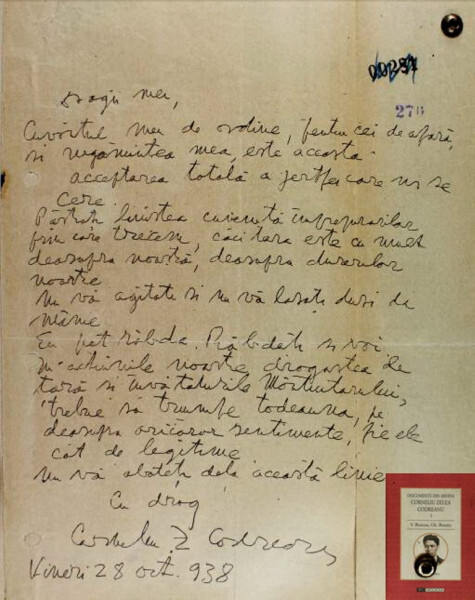 00287
276
Dragii mei,
Cuvântul meu de ordine, pentru cei de afară,
și rugămintea mea, este aceasta
acceptarea totală a jertfei care ni se
cere.
Păstrați liniștea cuvenită împrejurărilor
prin care trecem, căci țara este cu mult
deasupra noastră, deasupra durerilor
noastre
Nu vă agitați și nu vă lăsați duși de
nimeni
Eu pot răbda. Răbdați și voi
În acțiunile noastre dragostea de
țară și învățăturile Mântuitorului,
trebuie să triumfe todeauna, pe
deasupra oricăror sentimente, fie ele
cât de legitime
Nu vă abateți dela această linie
Cu drag
Corneliu Z Codreanu
Vineri 28 oct. 938
DOCUMENTE DIN ARHIVA
CORNELIU ZELEA
CODREANU
I